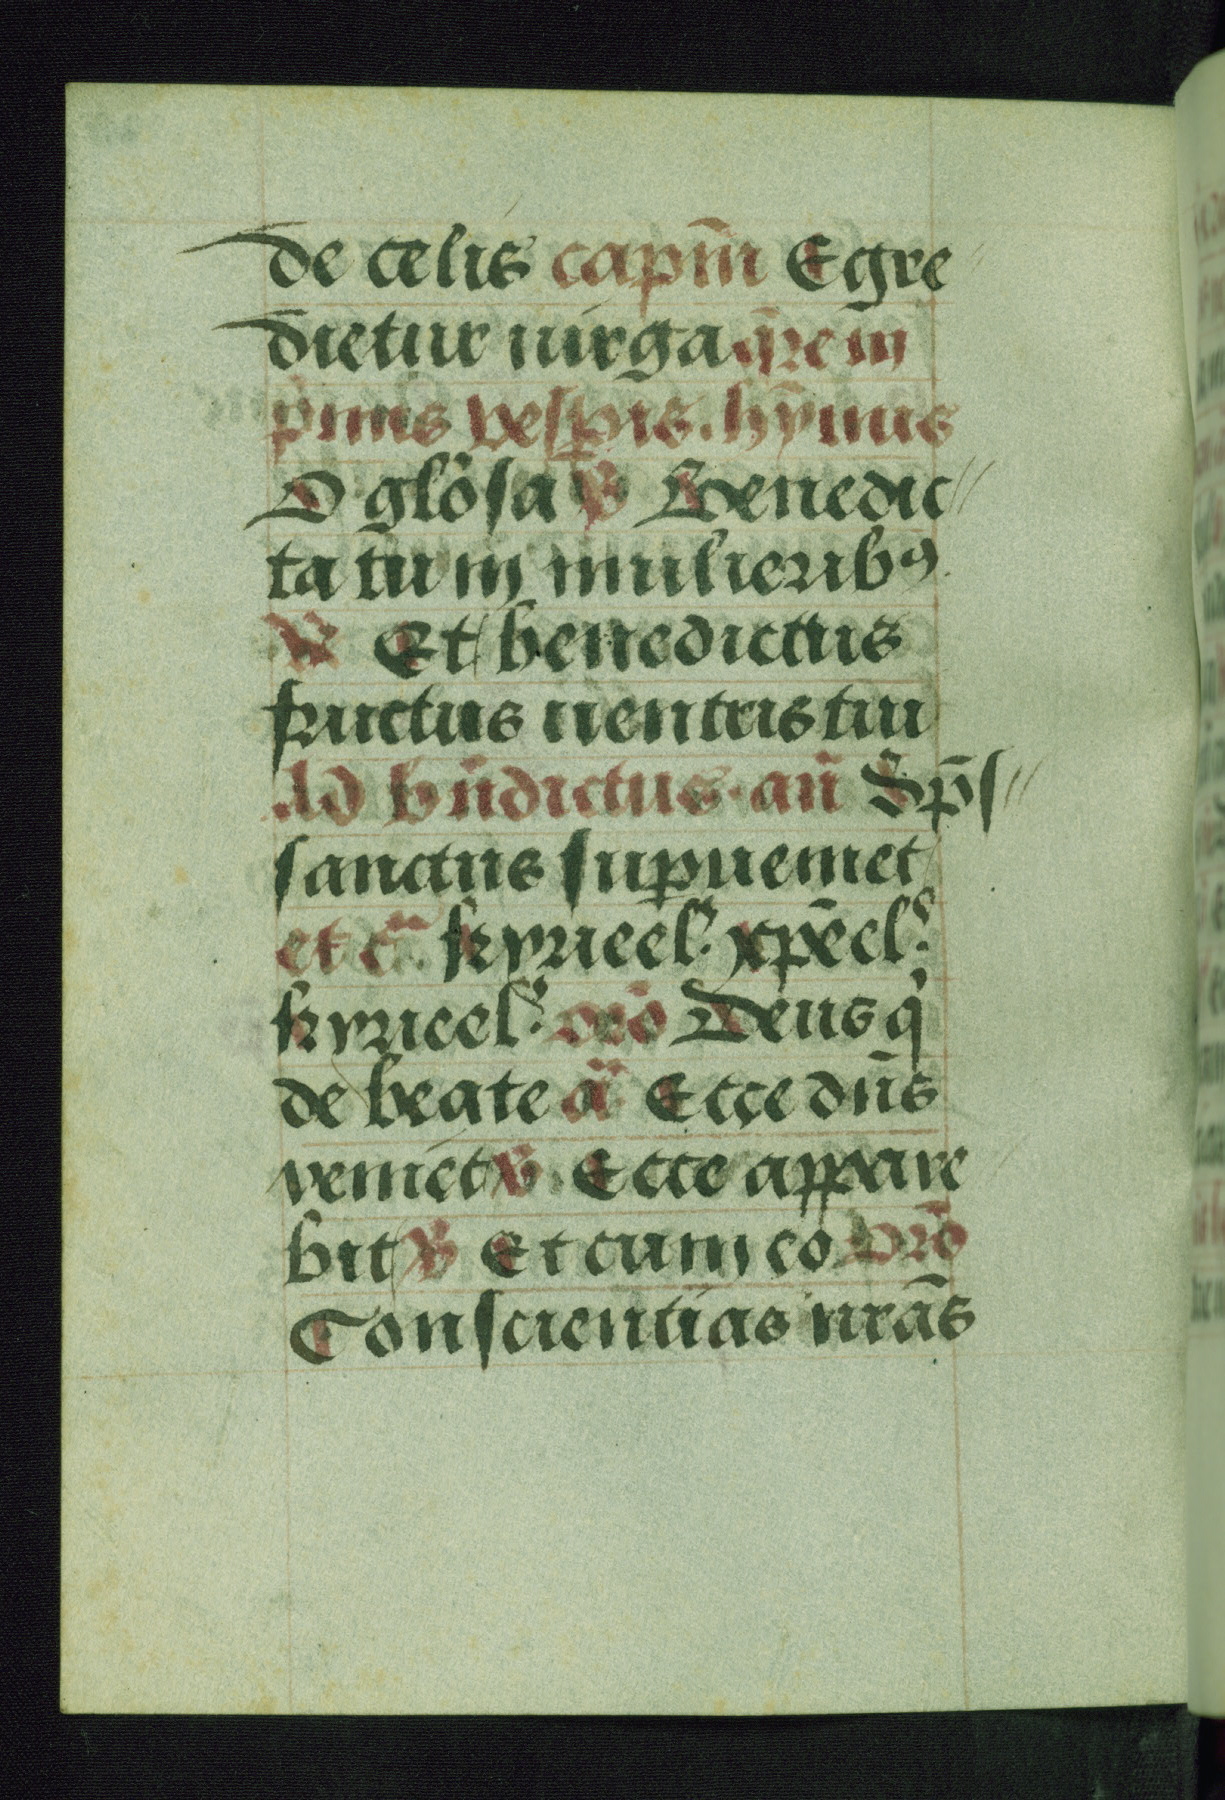 de celis capm̄ Egre
dietur uirga q̄re in
p̄mis vesꝑis. hȳmus
O glōsa ℣ Benedic
ta tu in mulieribꝰ
℟ Et benedictus
fructus uentris tui
Ad bn̄dictus. an̄ Sp̄s
sanctus suꝑueniet
et cͣ. kyrieel'. xp̄eel'.
kyrieel'. orō Deus q̇
de beate a͞ Ecce dn̄s
veniet ℣. Ecce appare
bit ℟ Et cum eo orō
Conscientias nrās